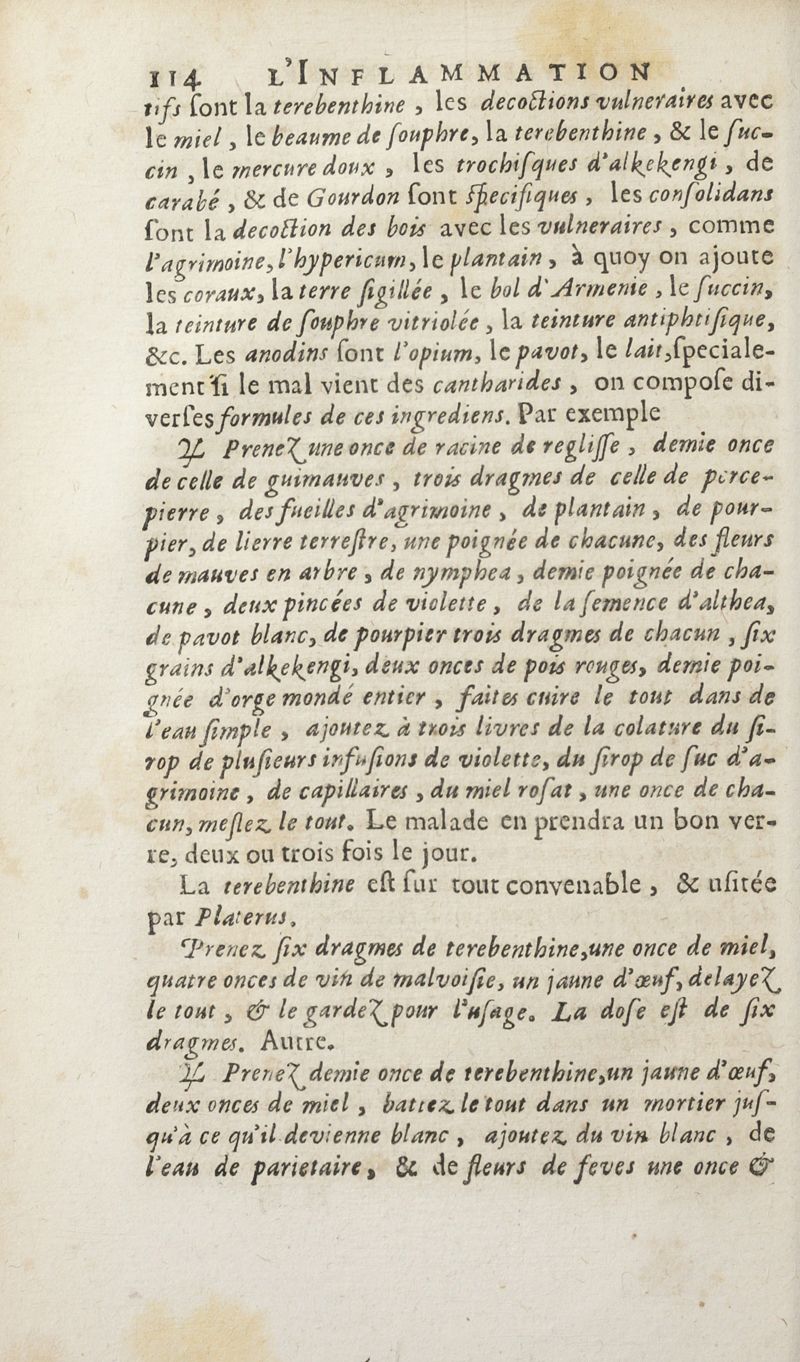 114 L'INFLAMMATION
tifs ſont la terebenthine, les decoctions vulneraires avec
le miel, le beaume de ſouphre, la terebenthine, & le ſuc-
cin, le mercure doux, les trochiſques d'alkekengi, de
carabé, & de Gourdon ſont ſpecifiques, les conſolidans
ſont la decoction des bois avec les vulneraires, comme
l'agrimoine, l'hypericum, le plantain, à quoy on ajoute
les coraux, la terre ſigillée, le bol d'Armenie, le ſuccin,
la teinture de ſouphre vitriolée, la teinture antiphtiſique,
&c. Les anodins ſont l'opium, le pavot, le lait, ſpeciale-
ment ſi le mal vient des cantharides, on compoſe di-
verſes formules de ces ingrediens. Par exemple
♃ Prenez une once de racine de regliſſe, demie once
de celle de guimauves, trois dragmes de celle de perce-
pierre, des fueilles d'agrimoine, de plantain, de pour-
pier, de lierre terreſtre, une poignée de chacune, des fleurs
de mauves en arbre, de nymphea, demie poignée de cha-
cune, deux pincées de violette, de la ſemence d'althea,
de pavot blanc, de pourpier trois dragmes de chacun, ſix
grains d'alkekengi, deux onces de pois rouges, demie poi-
gnée d'orge mondé entier, faites cuire le tout dans de
l'eau ſimple, ajoutez à trois livres de la colature du ſi-
rop de pluſieurs infuſions de violette, du ſirop de ſuc d'a-
grimoine, de capillaires, du miel roſat, une once de cha-
cun, meſlez le tout. Le malade en prendra un bon ver-
re, deux ou trois fois le jour.
La terebenthine eſt ſur tout convenable, & uſitée
par Platerus.
Prenez ſix dragmes de terebenthine, une once de miel,
quatre onces de vin de malvoiſie, un jaune d'œuf, delayez
le tout, & le gardez pour l'uſage. La doſe eſt de ſix
dragmes. Autre.
♃ Prenez demie once de terebenthine, un jaune d'œuf,
deux onces de miel, battez le tout dans un mortier juſ-
qu'à ce qu'il devienne blanc, ajoutez du vin blanc, de
l'eau de parietaire, & de fleurs de feves une once &